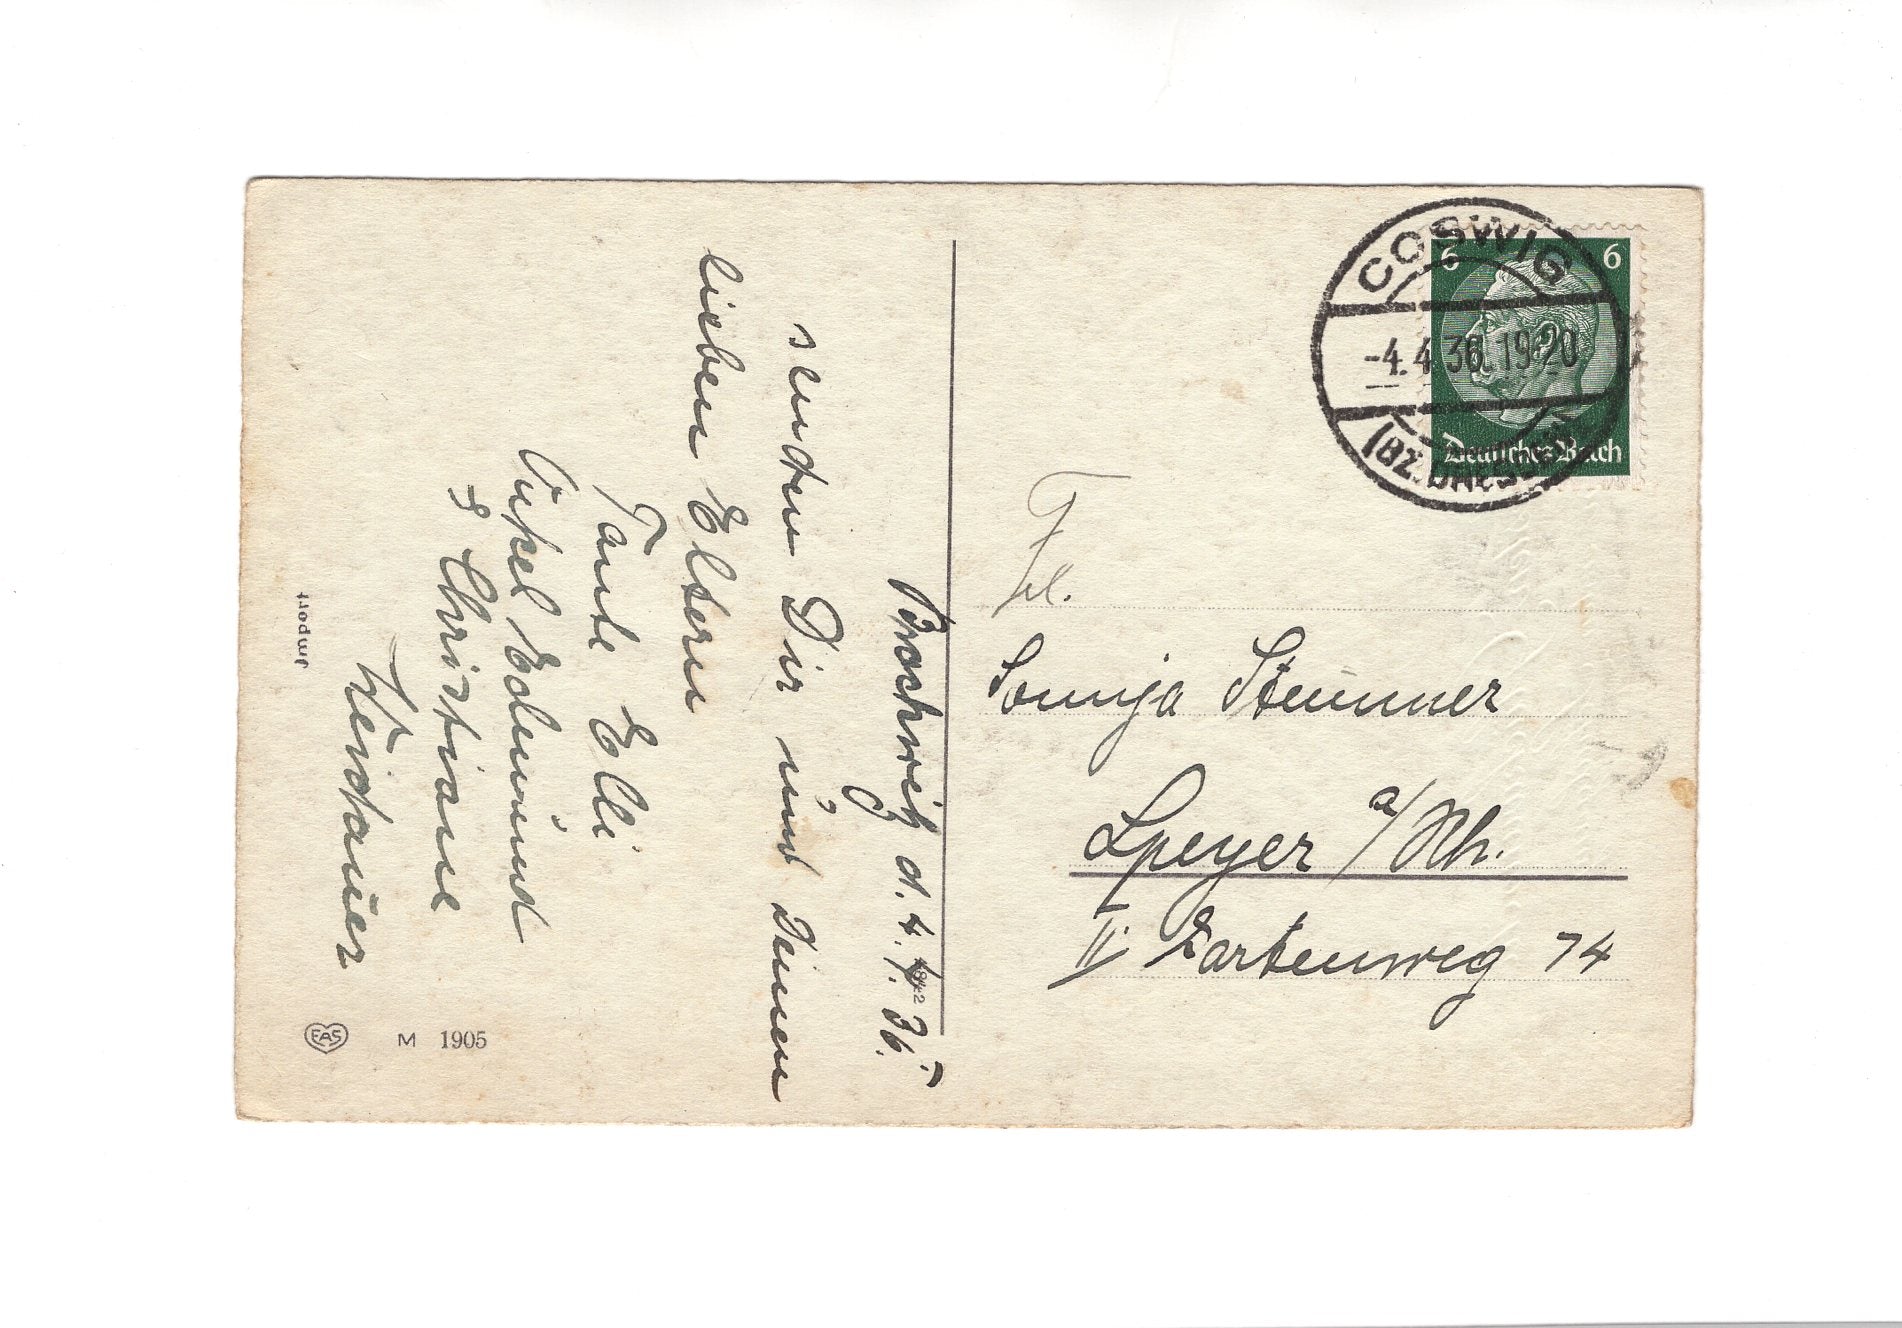 Brockwitz d. 4. 4. 36.
senden Dir und Deinen
lieben Eltern
Tante Elli
Onkel Edmund
& Christiane
Weidauer
Import
EAS
M 1905
COSWIG
-4.4.36.19-20
(BZ. DRESDEN)
6 6
Deutsches Reich
Frl.
Sonnja Stemmer
Speyer a/Rh.
II Gartenweg 74